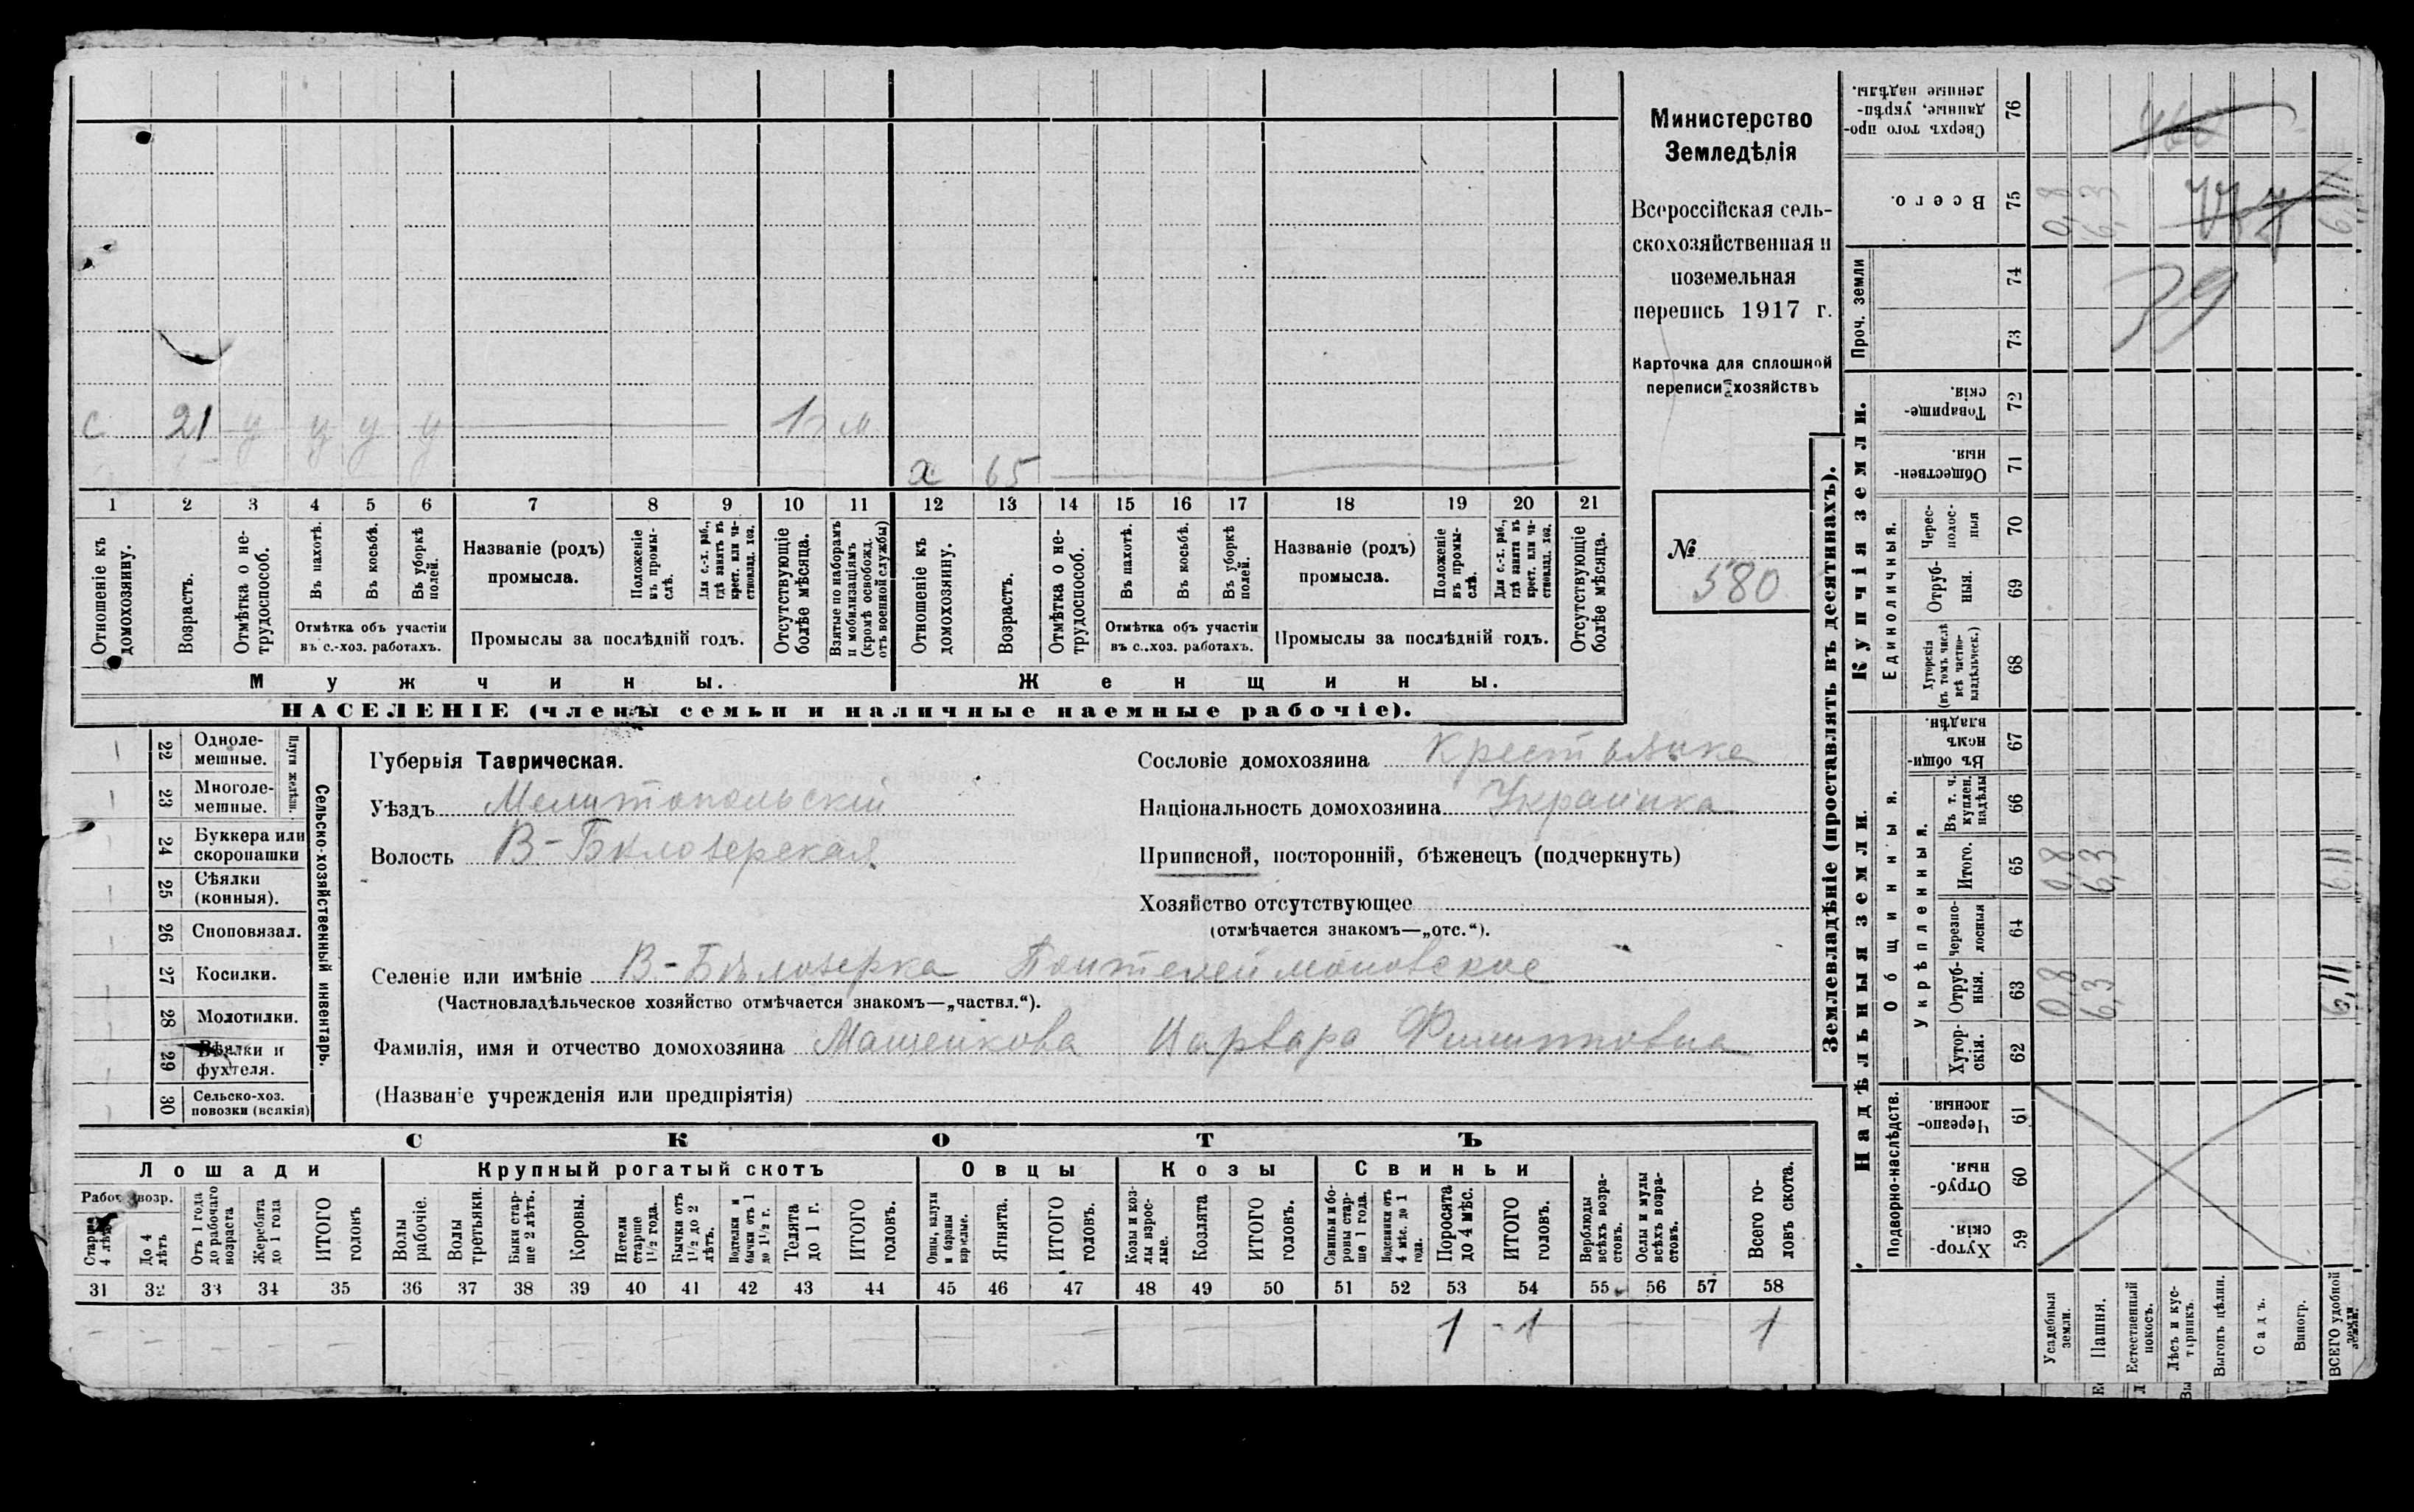 Министерство
Земледѣлія
Всероссійская сель-
скохозяйственная и
поземельная
перепись 1917 г.
Карточка для сплошной
переписи хозяйствъ
№
580
с 21 у у у у 1 г м
х 65
1 2 3 4 5 6 7 8 9 10 11 12 13 14 15 16 17 18 19 20 21
Отношеніе къ домохозяину.
Возрастъ.
Отмѣтка о не-трудоспособ.
Въ пахотѣ.
Въ косьбѣ.
Въ уборкѣ полей.
Отмѣтка объ участіи
въ с.-хоз. работахъ.
Названіе (родъ)
промысла.
Положеніе въ промы-слѣ.
Для с.-х. раб., гдѣ занятъ въ крест. или ча-стновлад. хоз.
Промыслы за послѣдній годъ.
Отсутствующіе болѣе мѣсяца.
Взятые по наборамъ и мобилизаціямъ (кромѣ освобожд. отъ военной службы)
Отношеніе къ домохозяину.
Возрастъ.
Отмѣтка о не-трудоспособ.
Въ пахотѣ.
Въ косьбѣ.
Въ уборкѣ полей.
Отмѣтка объ участіи
въ с.-хоз. работахъ.
Названіе (родъ)
промысла.
Положеніе въ промы-слѣ.
Для с.-х. раб., гдѣ занята въ крест. или ча-стновлад. хоз.
Промыслы за послѣдній годъ.
Отсутствующіе болѣе мѣсяца.
Мужчины. Женщины.
НАСЕЛЕНІЕ (члены семьи и наличные наемные рабочіе).
Сельско-хозяйственный инвентарь.
Плуги желѣзн.
22 Одноле-мешные.
23 Многоле-мешные.
24 Буккера или скоропашки
25 Сѣялки (конныя).
26 Сноповязал.
27 Косилки.
28 Молотилки.
29 Вѣялки и фухтеля.
30 Сельско-хоз. повозки (всякія)
Губернія Таврическая.
Уѣздъ Мелитопольскій
Волость В-Бѣлозерская
Сословіе домохозяина Крестьянка
Національность домохозяина Украинка
Приписной, посторонній, бѣженецъ (подчеркнуть)
Хозяйство отсутствующее
(отмѣчается знакомъ—„отс.“).
Селеніе или имѣніе В-Бѣлозерка
(Частновладѣльческое хозяйство отмѣчается знакомъ—„частвл.“).
Фамилія, имя и отчество домохозяина Мащенкова Варвара Филипповна
(Названіе учрежденія или предпріятія)
СКОТЪ
Лошади Крупный рогатый скотъ Овцы Козы Свиньи
Рабоч. возр.
Старше 4 лѣтъ
До 4 лѣтъ
Отъ 1 года до рабочаго возраста
Жеребята до 1 года
ИТОГО головъ
Волы рабочіе.
Волы третьяки.
Быки стар-ше 2 лѣтъ.
Коровы.
Нетели старше 1½ года.
Бычки отъ 1½ до 2 лѣтъ.
Подтелки и бычки отъ 1 до 1½ г.
Телята до 1 г.
ИТОГО головъ.
Овцы, валухи и бараны взрослые.
Ягнята.
ИТОГО головъ.
Козы и коз-лы взрос-лые.
Козлята
ИТОГО головъ.
Свиньи и бо-ровы стар-ше 1 года.
Подсвинки отъ 4 мѣс. до 1 года.
Поросята до 4 мѣс.
ИТОГО головъ.
Верблюды всѣхъ возра-стовъ.
Ослы и мулы всѣхъ возра-стовъ.
Всего го-ловъ скота.
31 32 33 34 35 36 37 38 39 40 41 42 43 44 45 46 47 48 49 50 51 52 53 54 55 56 57 58
1 1 1
Землевладѣніе (проставлять въ десятинахъ).
Надѣльныя земли. Купчія земли. Проч. земли
Подворно-наслѣдств.
Общинныя.
Укрѣпленныя.
Единоличныя.
Сверхъ того про-данные, укрѣп-ленные надѣлы. 76
Всего. 75 0,8 6,3 6,11
74
73
39
Товарище-скія 72
Обществен-ныя. 71
Черес-полос-ныя 70
Отруб-ныя. 69
Хуторскія (въ томъ числѣ всѣ частно-владѣльческ.) 68
Въ общин-номъ владѣн. 67
Въ т. ч. куплен. надѣлы 66
Итого. 65 0,8 6,3 6,11
Черезпо-лосныя 64
Отруб-ныя. 63 0,8 6,3 6,11
Хутор-скія. 62
Черезпо-лосныя. 61
Отруб-ныя. 60
Хутор-скія. 59
Усадебныя земли.
Пашня.
Естественный покосъ.
Лѣсъ и кус-тарникъ.
Выгонъ цѣлин.
Садъ.
Виногр.
ВСЕГО удобной земли